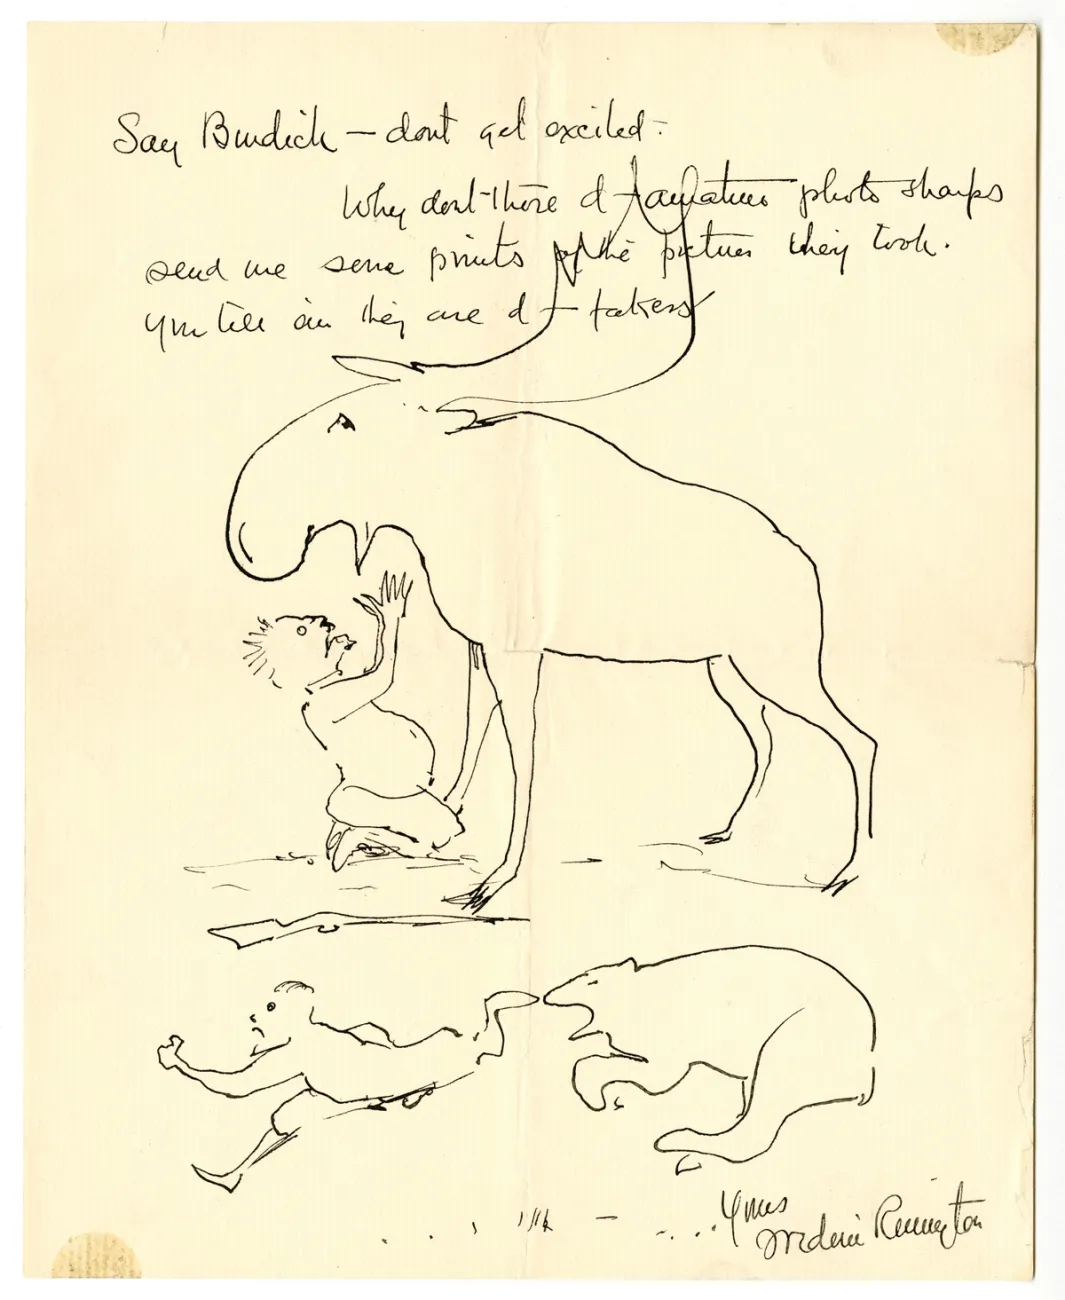 Say Burdick — dont get excited.
Why dont those d— amateur photo sharps
send me some prints of the pictures they took.
You tell em they are d— fakers
Yours
Frederic Remington